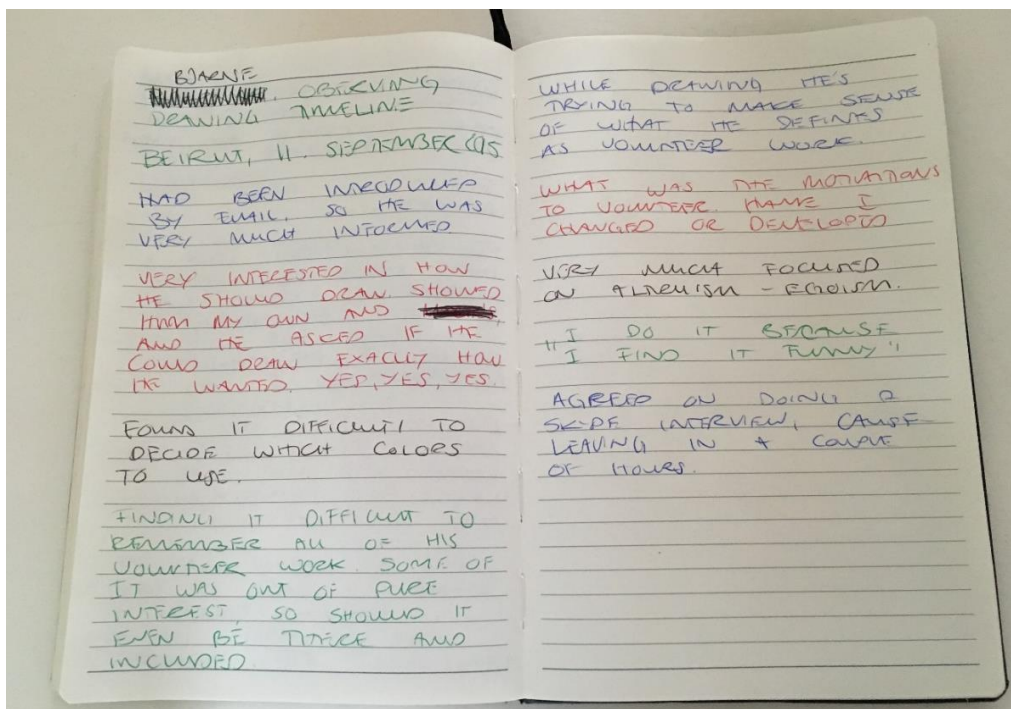 BJARNE
. OBSERVING
DRAWING TIMELINE
BEIRUT, 11. SEPTEMBER
HAD BEEN INTRODUCED
BY EMAIL. SO HE WAS
VERY MUCH INFORMED
VERY INTERESTED IN HOW
HE SHOULD DRAW. SHOWED
HIM MY OWN AND
AND HE ASCED IF HE
COULD DRAW EXACLY HOW
HE WANTED. YES, YES, YES.
FOUND IT DIFFICULT TO
DECIDE WITCH COLORS
TO USE.
FINDING IT DIFFICULT TO
REMEMBER ALL OF HIS
VOLUNTEER WORK. SOME OF
IT WAS OUT OF PURE
INTEREST. SO SHOULD IT
EVEN BE THERE AND
INCLUDED
WHILE DRAWING HE'S
TRYING TO MAKE SENSE
OF WHAT HE DEFINES
AS VOLUNTEER WORK.
WHAT WAS THE MOTIVATIONS
TO VOLUNTEER. HAVE I
CHANGED OR DEVELOPED
VERY MUCH FOCUSED
ON ALTRUISM - EGOISM.
"I DO IT BECAUSE
I FIND IT FUNNY"
AGREED ON DOING A
SKYPE INTERVIEW, CAUSE
LEAVING IN A COUPLE
OF HOURS.